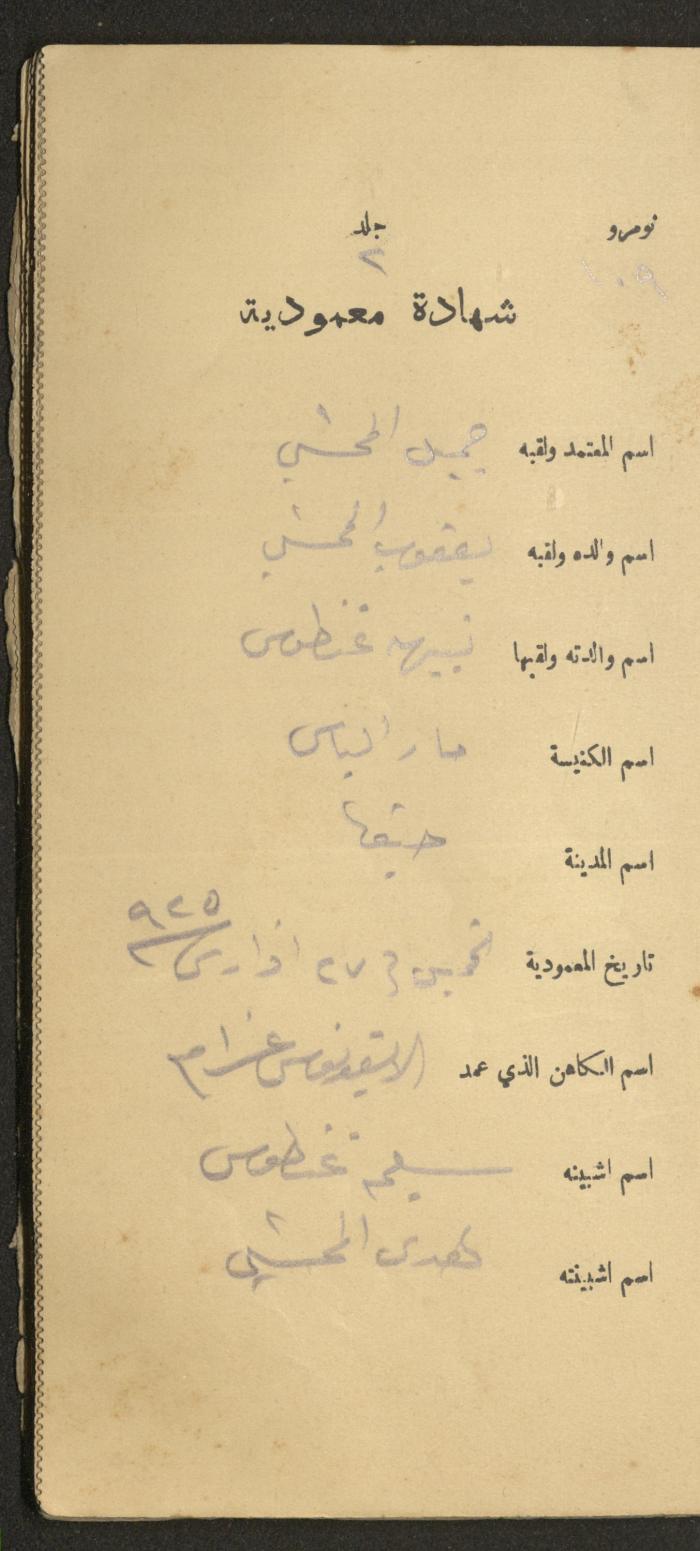 نومرو جلد
١٠٩ ٢
شهادة معمودية
اسم المعتمد ولقبه جميل المحشي
اسم والده ولقبه يعقوب المحشي
اسم والدته ولقبها نبيهه غنطوس
اسم الكنيسة مار الياس
اسم المدينة حيفا
تاريخ المعمودية في ٢٧ اذار ٩٢٥
اسم الكاهن الذي عمد
اسم اشبينه سليم غنطوس
اسم اشبينته المحشي